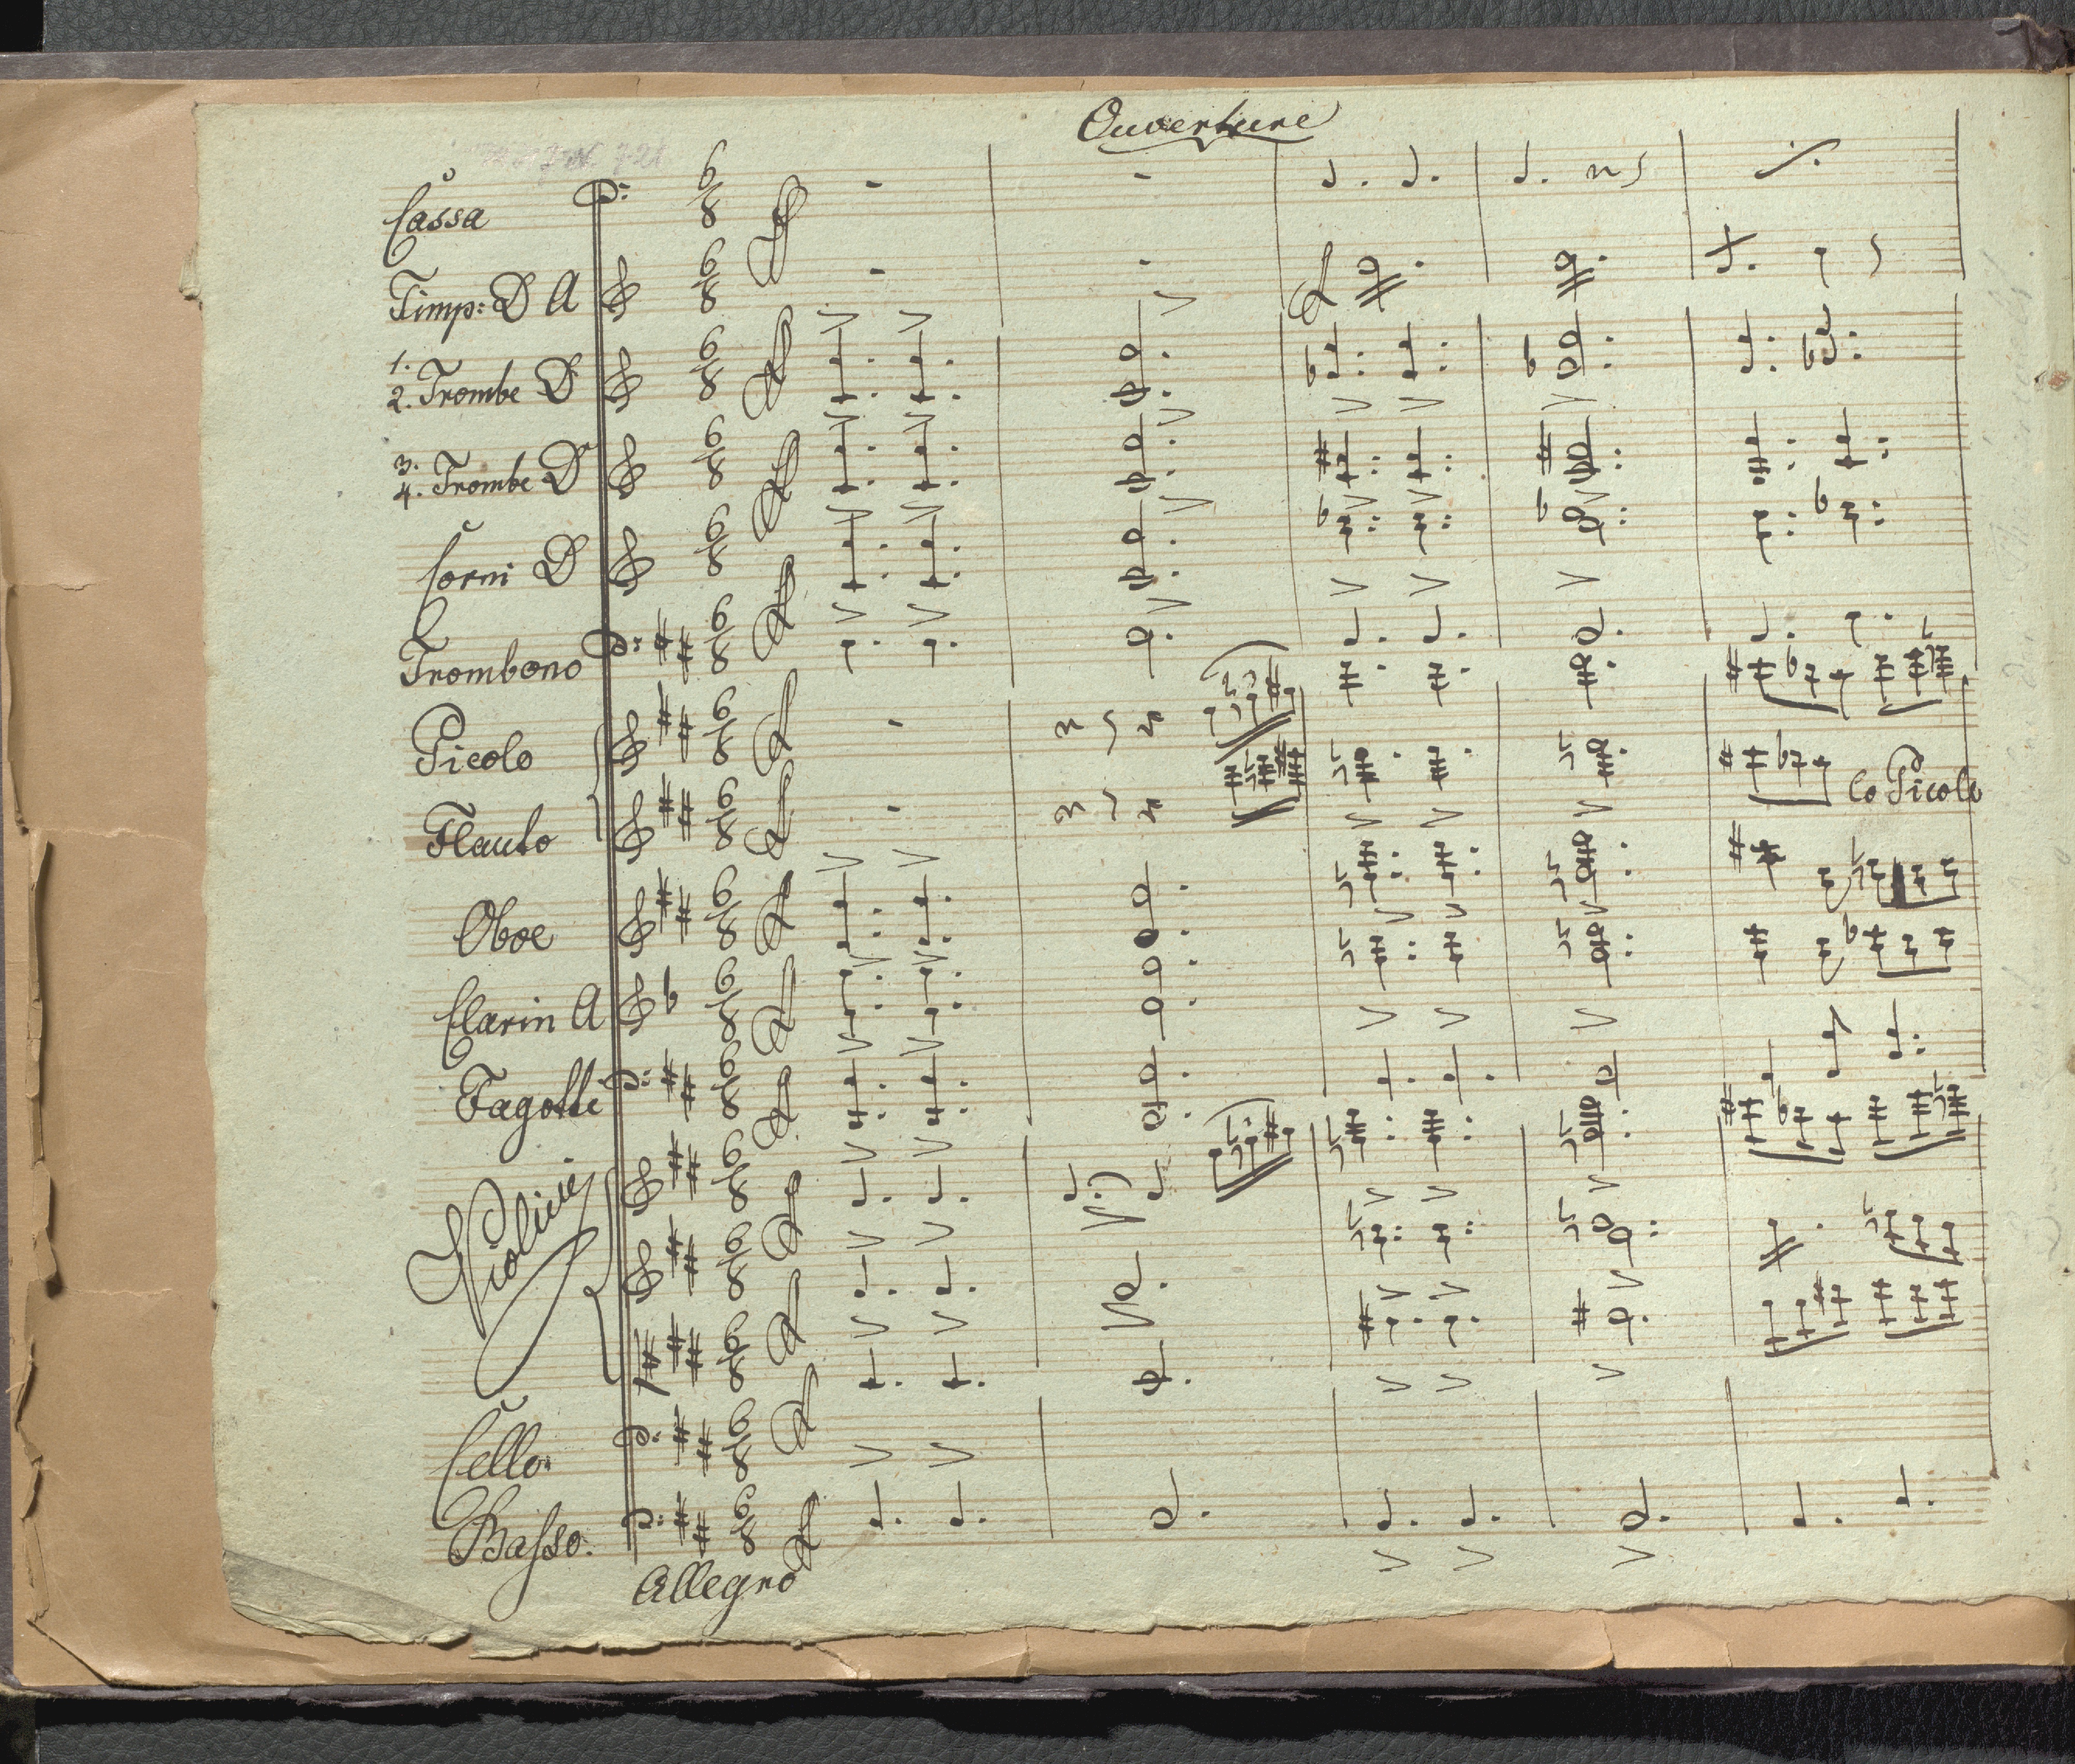 Ouverture
Cassa
Timp: D A
1.
2. Trombe D
3.
4. Trombe D
Corni D
Trombono
Picolo
Co Picolo
Flauto
Oboe
Clarin A
Fagotti
Violini
Cello
Basso.
Allegro